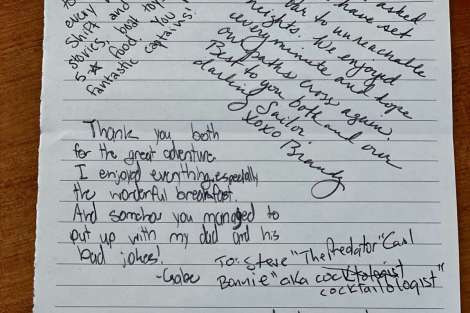 every
Ship and
stories, boat toys
5☆ food. You
fantastic captains!
asked
have set
bar to unreachable
heights. We enjoyed
every minute and hope
our paths cross again.
Best to you both and our
darling Sailor.
xoxo Brandy
Thank you both
for the great adventure
I enjoyed everything, especially
the wonderful breakfast.
And somehow you managed to
put up with my dad and his
bad jokes!
-Gabe
To: Steve "The Predator" Carl
Bonnie "aka cocktologist
cocktailologist"